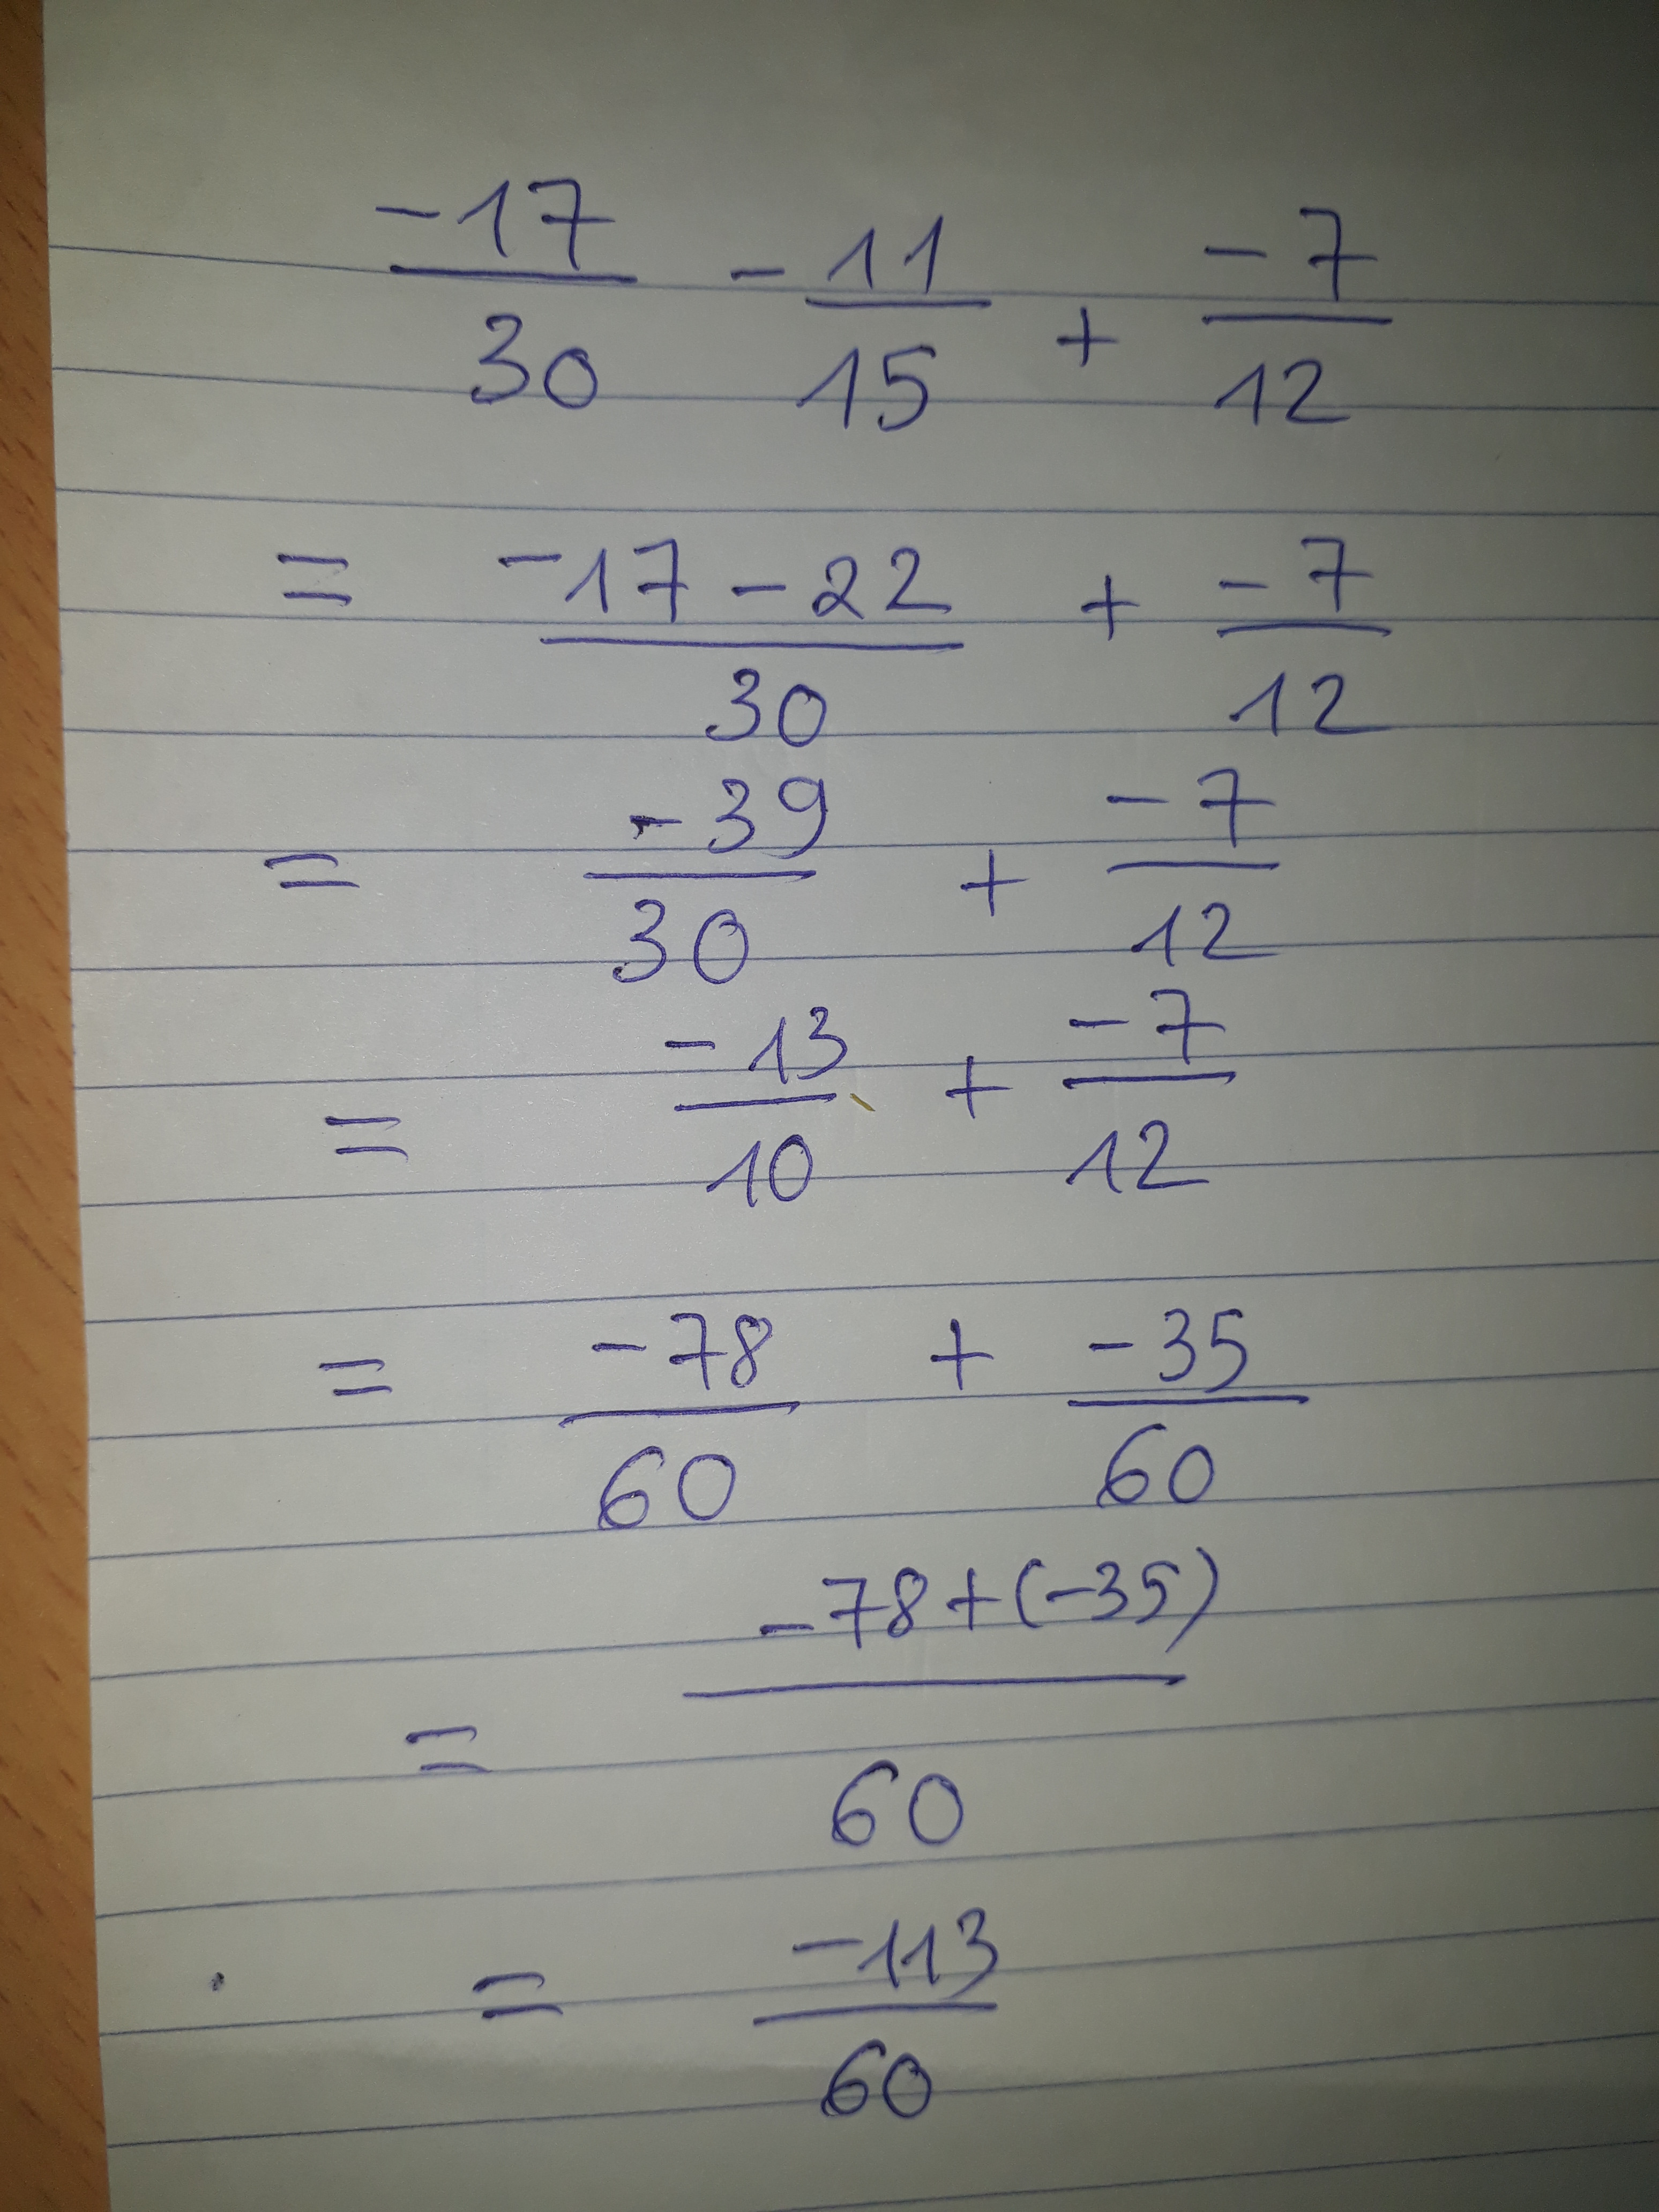 -17/30 - 11/15 + -7/12
= -17-22/30 + -7/12
= -39/30 + -7/12
= -13/10 + -7/12
= -78/60 + -35/60
= -78+(-35)/60
= -113/60